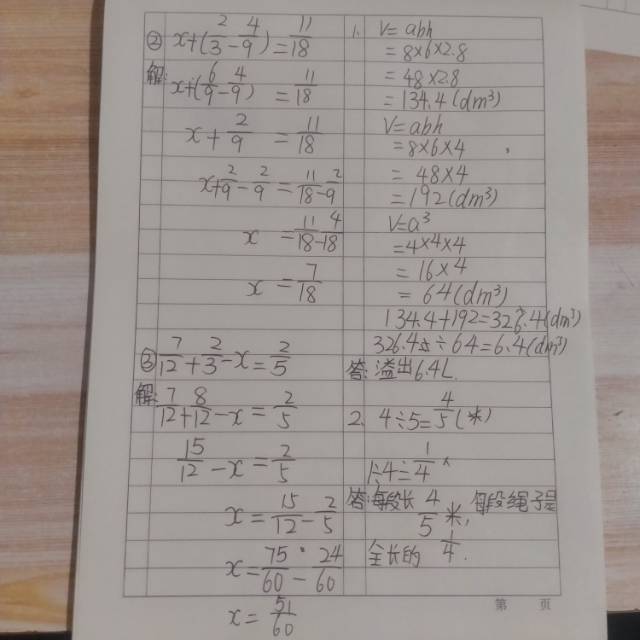 ② x+(2/3-4/9)=11/18
解: x+(6/9-4/9)=11/18
x+2/9=11/18
x+2/9-2/9=11/18-2/9
x=11/18-4/18
x=7/18
③ 7/12+2/3-x=2/5
解: 7/12+8/12-x=2/5
15/12-x=2/5
x=15/12-2/5
x=75/60-24/60
x=51/60
1. V=abh
=8×6×2.8
=48×2.8
=134.4(dm³)
V=abh
=8×6×4
=48×4
=192(dm³)
V=a³
=4×4×4
=16×4
=64(dm³)
134.4+192=326.4(dm³)
326.4÷64=6.4(dm³)
答:溢出6.4L.
2. 4÷5=4/5(米)
1÷4=1/4
答:每段长4/5米,每段绳子是
全长的1/4.
第 页